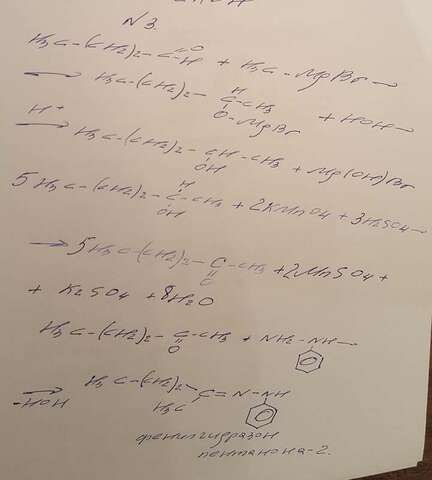 N 3.
H₃C-(CH₂)₂-C=O H + H₃C-MgBr →
→ H₃C-(CH₂)₂-C H -CH₃ O-MgBr + HOH →
H⁺ → H₃C-(CH₂)₂-CH-CH₃ OH + Mg(OH)Br
5 H₃C-(CH₂)₂-C H -CH₃ OH + 2KMnO₄ + 3H₂SO₄ →
→ 5H₃C-(CH₂)₂-C-CH₃ O + 2MnSO₄ +
+ K₂SO₄ + 8H₂O
H₃C-(CH₂)₂-C-CH₃ O + NH₂-NH →
-HOH → H₃C-(CH₂)₂ H₃C C=N-NH
фенилгидразон
пентанона-2.